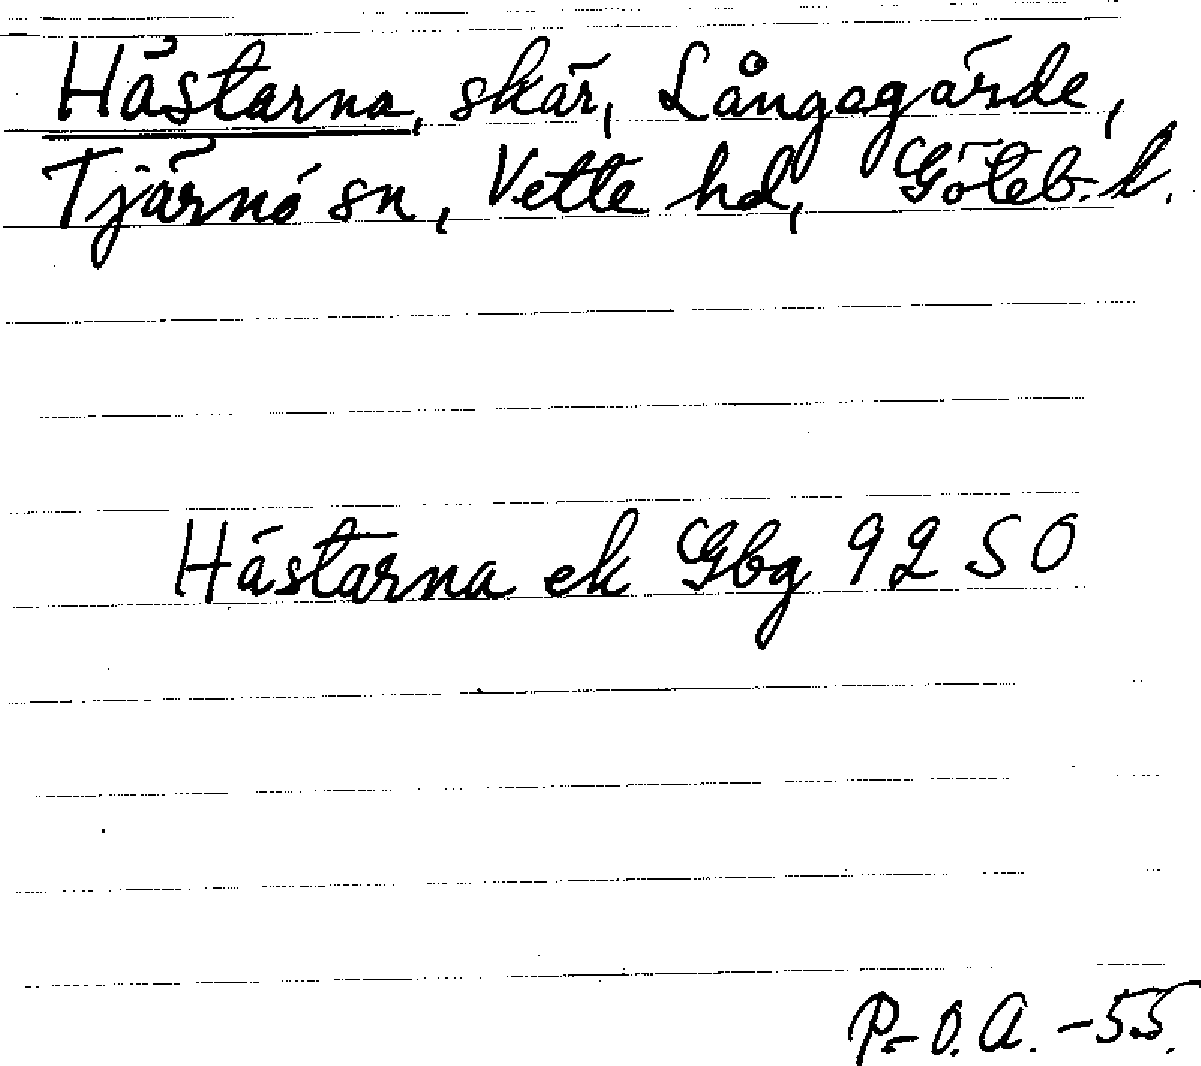 Hästarna, skär, Långagärde,
Tjärnö sn, Vette hd, Göteb. l.
Hästarna ek Gbg 92 SO
P.-O. A. -55.